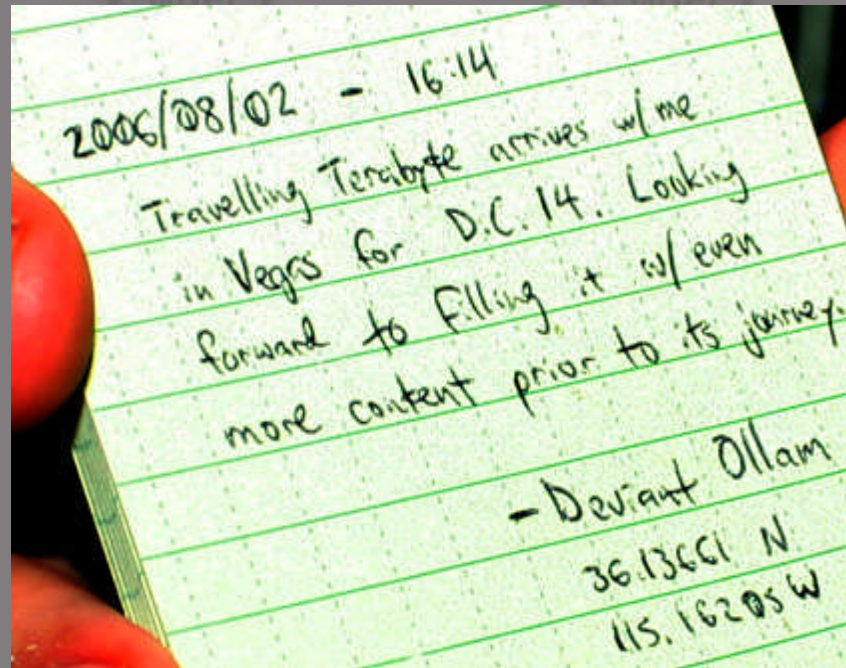 2006/08/02 - 16:14
Travelling Terabyte arrives w/ me
in Vegas for D.C. 14. Looking
forward to filling it w/ even
more content prior to its journey.
- Deviant Ollam
36.13661 N
115.16205 W